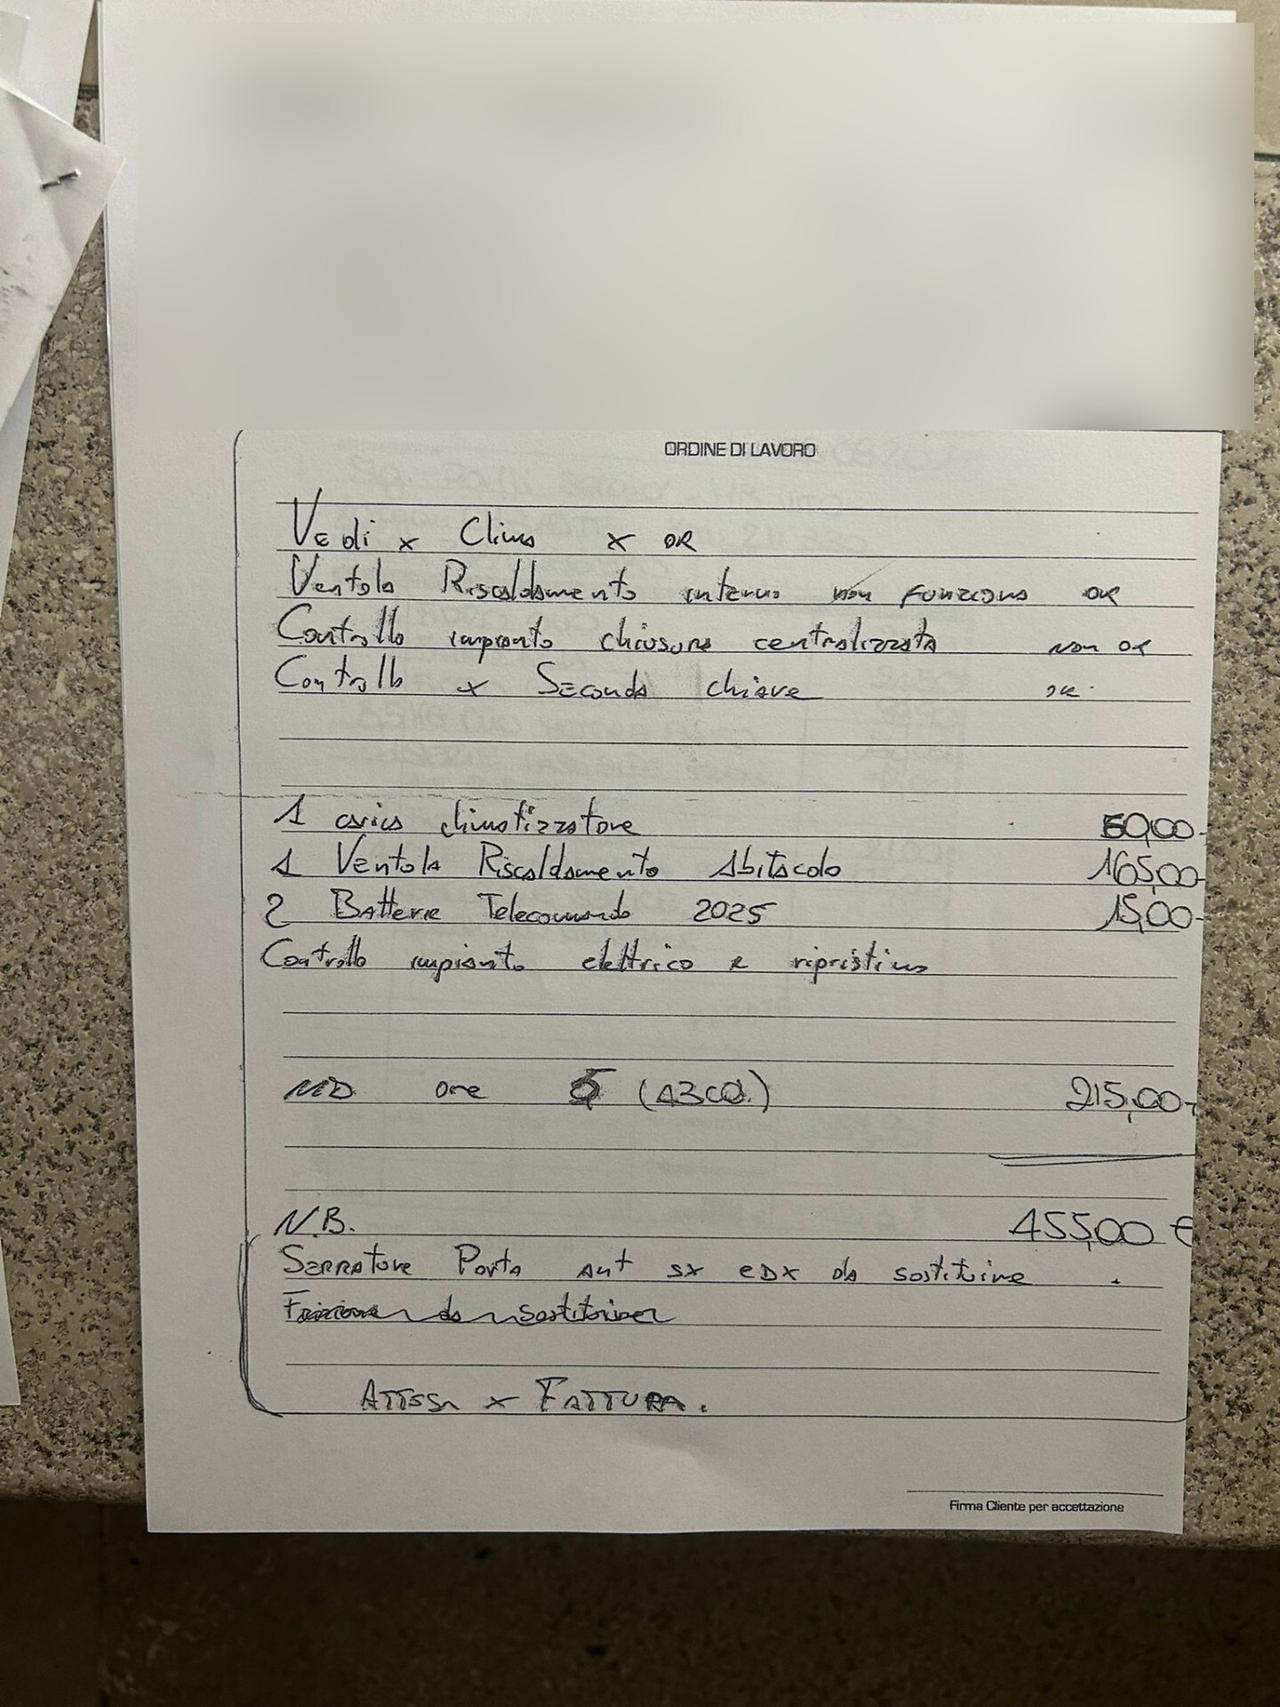 ORDINE DI LAVORO
Vedi x Clima x OK
Ventola Riscaldamento interno non funziona OK
Controllo impianto chiusura centralizzata non OK
Controllo x Seconda chiave OK.
1 carica climatizzatore 60,00-
1 Ventola Riscaldamento Abitacolo 165,00-
2 Batterie Telecomando 2025 15,00-
Controllo impianto elettrico e ripristino
MD ore 5 215,00-
N.B. 455,00 €
Serrature Porta Ant sx e DX da sostituire.
Frizione da sostituire
Attesa x FATTURA.
Firma Cliente per accettazione